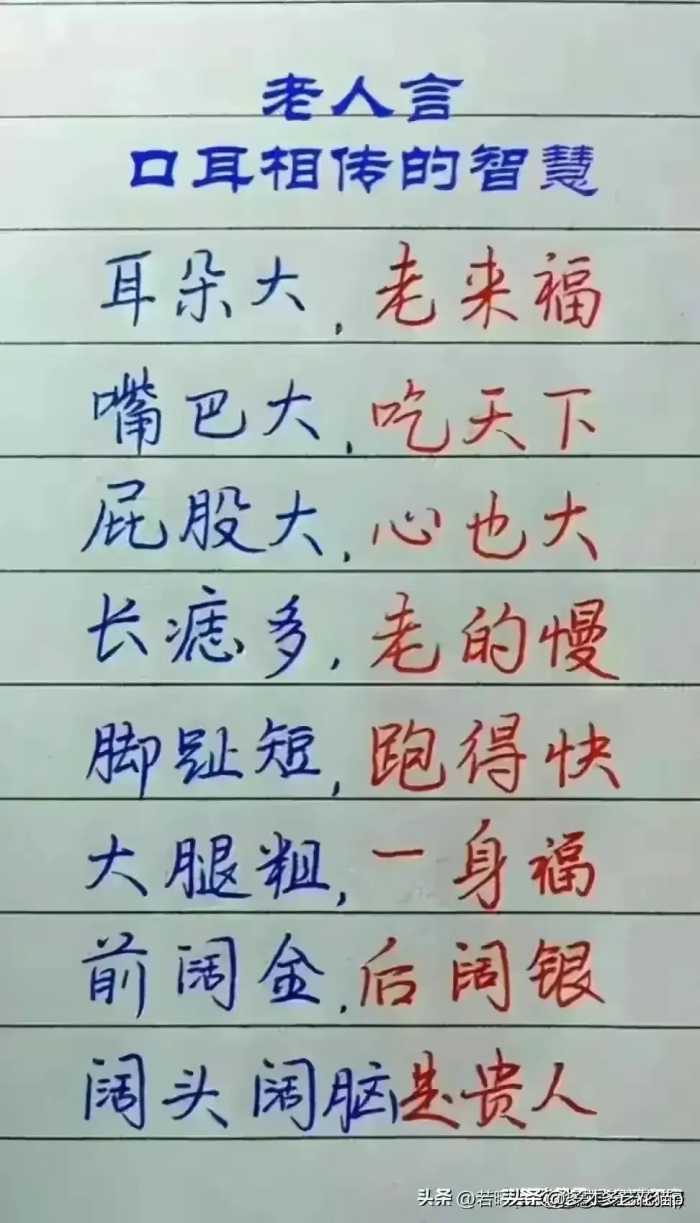 老人言
口耳相传的智慧
耳朵大,老来福
嘴巴大,吃天下
屁股大,心也大
长痣多,老的慢
脚趾短,跑得快
大腿粗,一身福
前阔金,后阔银
阔头阔脑是贵人